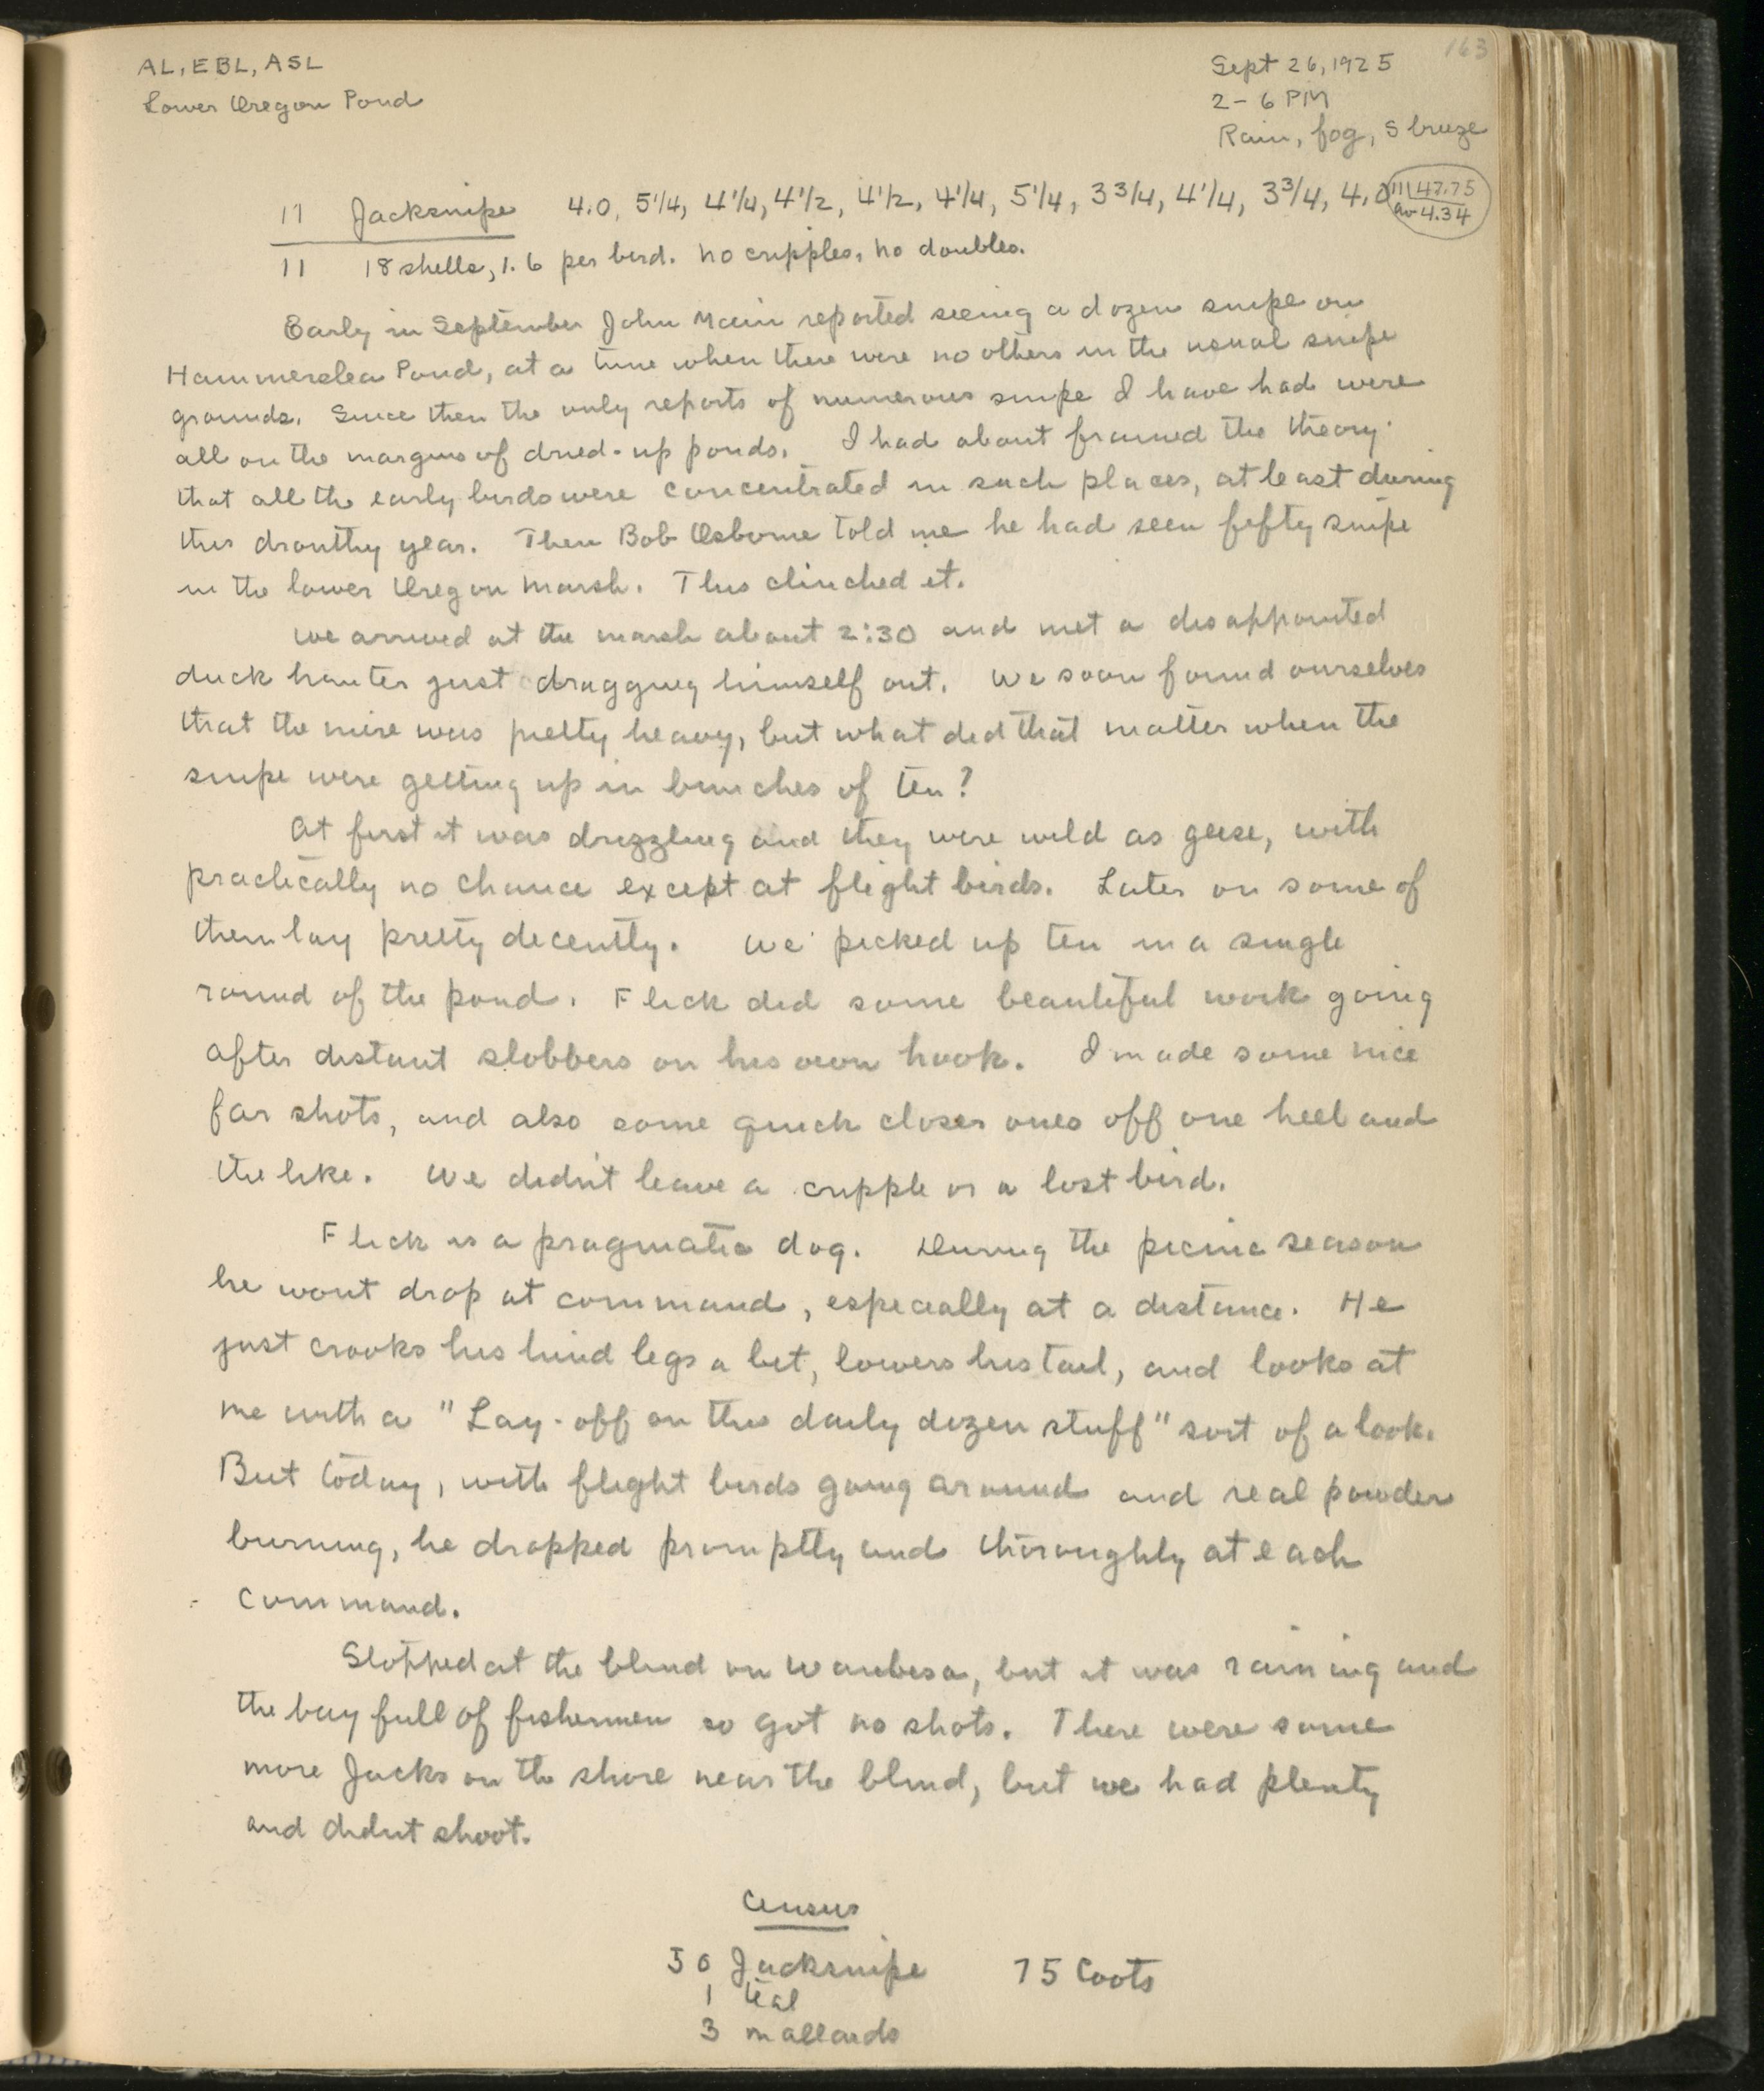 163
AL, EBL, ASL
Lower Oregon Pond
Sept 26, 1925
2 - 6 PM
Rain, fog, S breeze
11 Jacksnipe 4.0, 5 1/4, 4 1/4, 4 1/2, 4 1/2, 4 1/4, 5 1/4, 3 3/4, 4 1/4, 3 3/4, 4.0
11|47.75
av 4.34
11 18 shells, 1.6 per bird. No cripples, no doubles.
Early in September John Main reported seeing a dozen snipe on
Hammerslea Pond, at a time when there were no others in the usual snipe
grounds. Since then the only reports of numerous snipe I have had were
all on the margins of dried-up ponds. I had about framed the theory
that all the early birds were concentrated in such places, at least during
this drouthy year. Then Bob Osborne told me he had seen fifty snipe
in the lower Oregon Marsh. This clinched it.
We arrived at the marsh about 2:30 and met a disappointed
duck hunter just dragging himself out. We soon found ourselves
that the mire was pretty heavy, but what did that matter when the
snipe were getting up in bunches of ten?
At first it was drizzling and they were wild as geese, with
practically no chance except at flight birds. Later on some of
them lay pretty decently. We picked up ten in a single
round of the pond. Flick did some beautiful work going
after distant slobbers on his own hook. I made some nice
far shots, and also some quick closer ones off one heel and
the like. We didn't leave a cripple or a lost bird.
Flick is a pragmatic dog. During the picnic season
he wont drop at command, especially at a distance. He
just crooks his hind legs a bit, lowers his tail, and looks at
me with a "Lay-off on this daily dozen stuff" sort of a look.
But today, with flight birds going around and real powder
burning, he dropped promptly and thoroughly at each
command.
Stopped at the blind on Waubesa, but it was raining and
the bay full of fishermen so got no shots. There were some
more Jacks on the shore near the blind, but we had plenty
and didnt shoot.
Census
50 Jacksnipe 75 Coots
1 teal
3 mallards